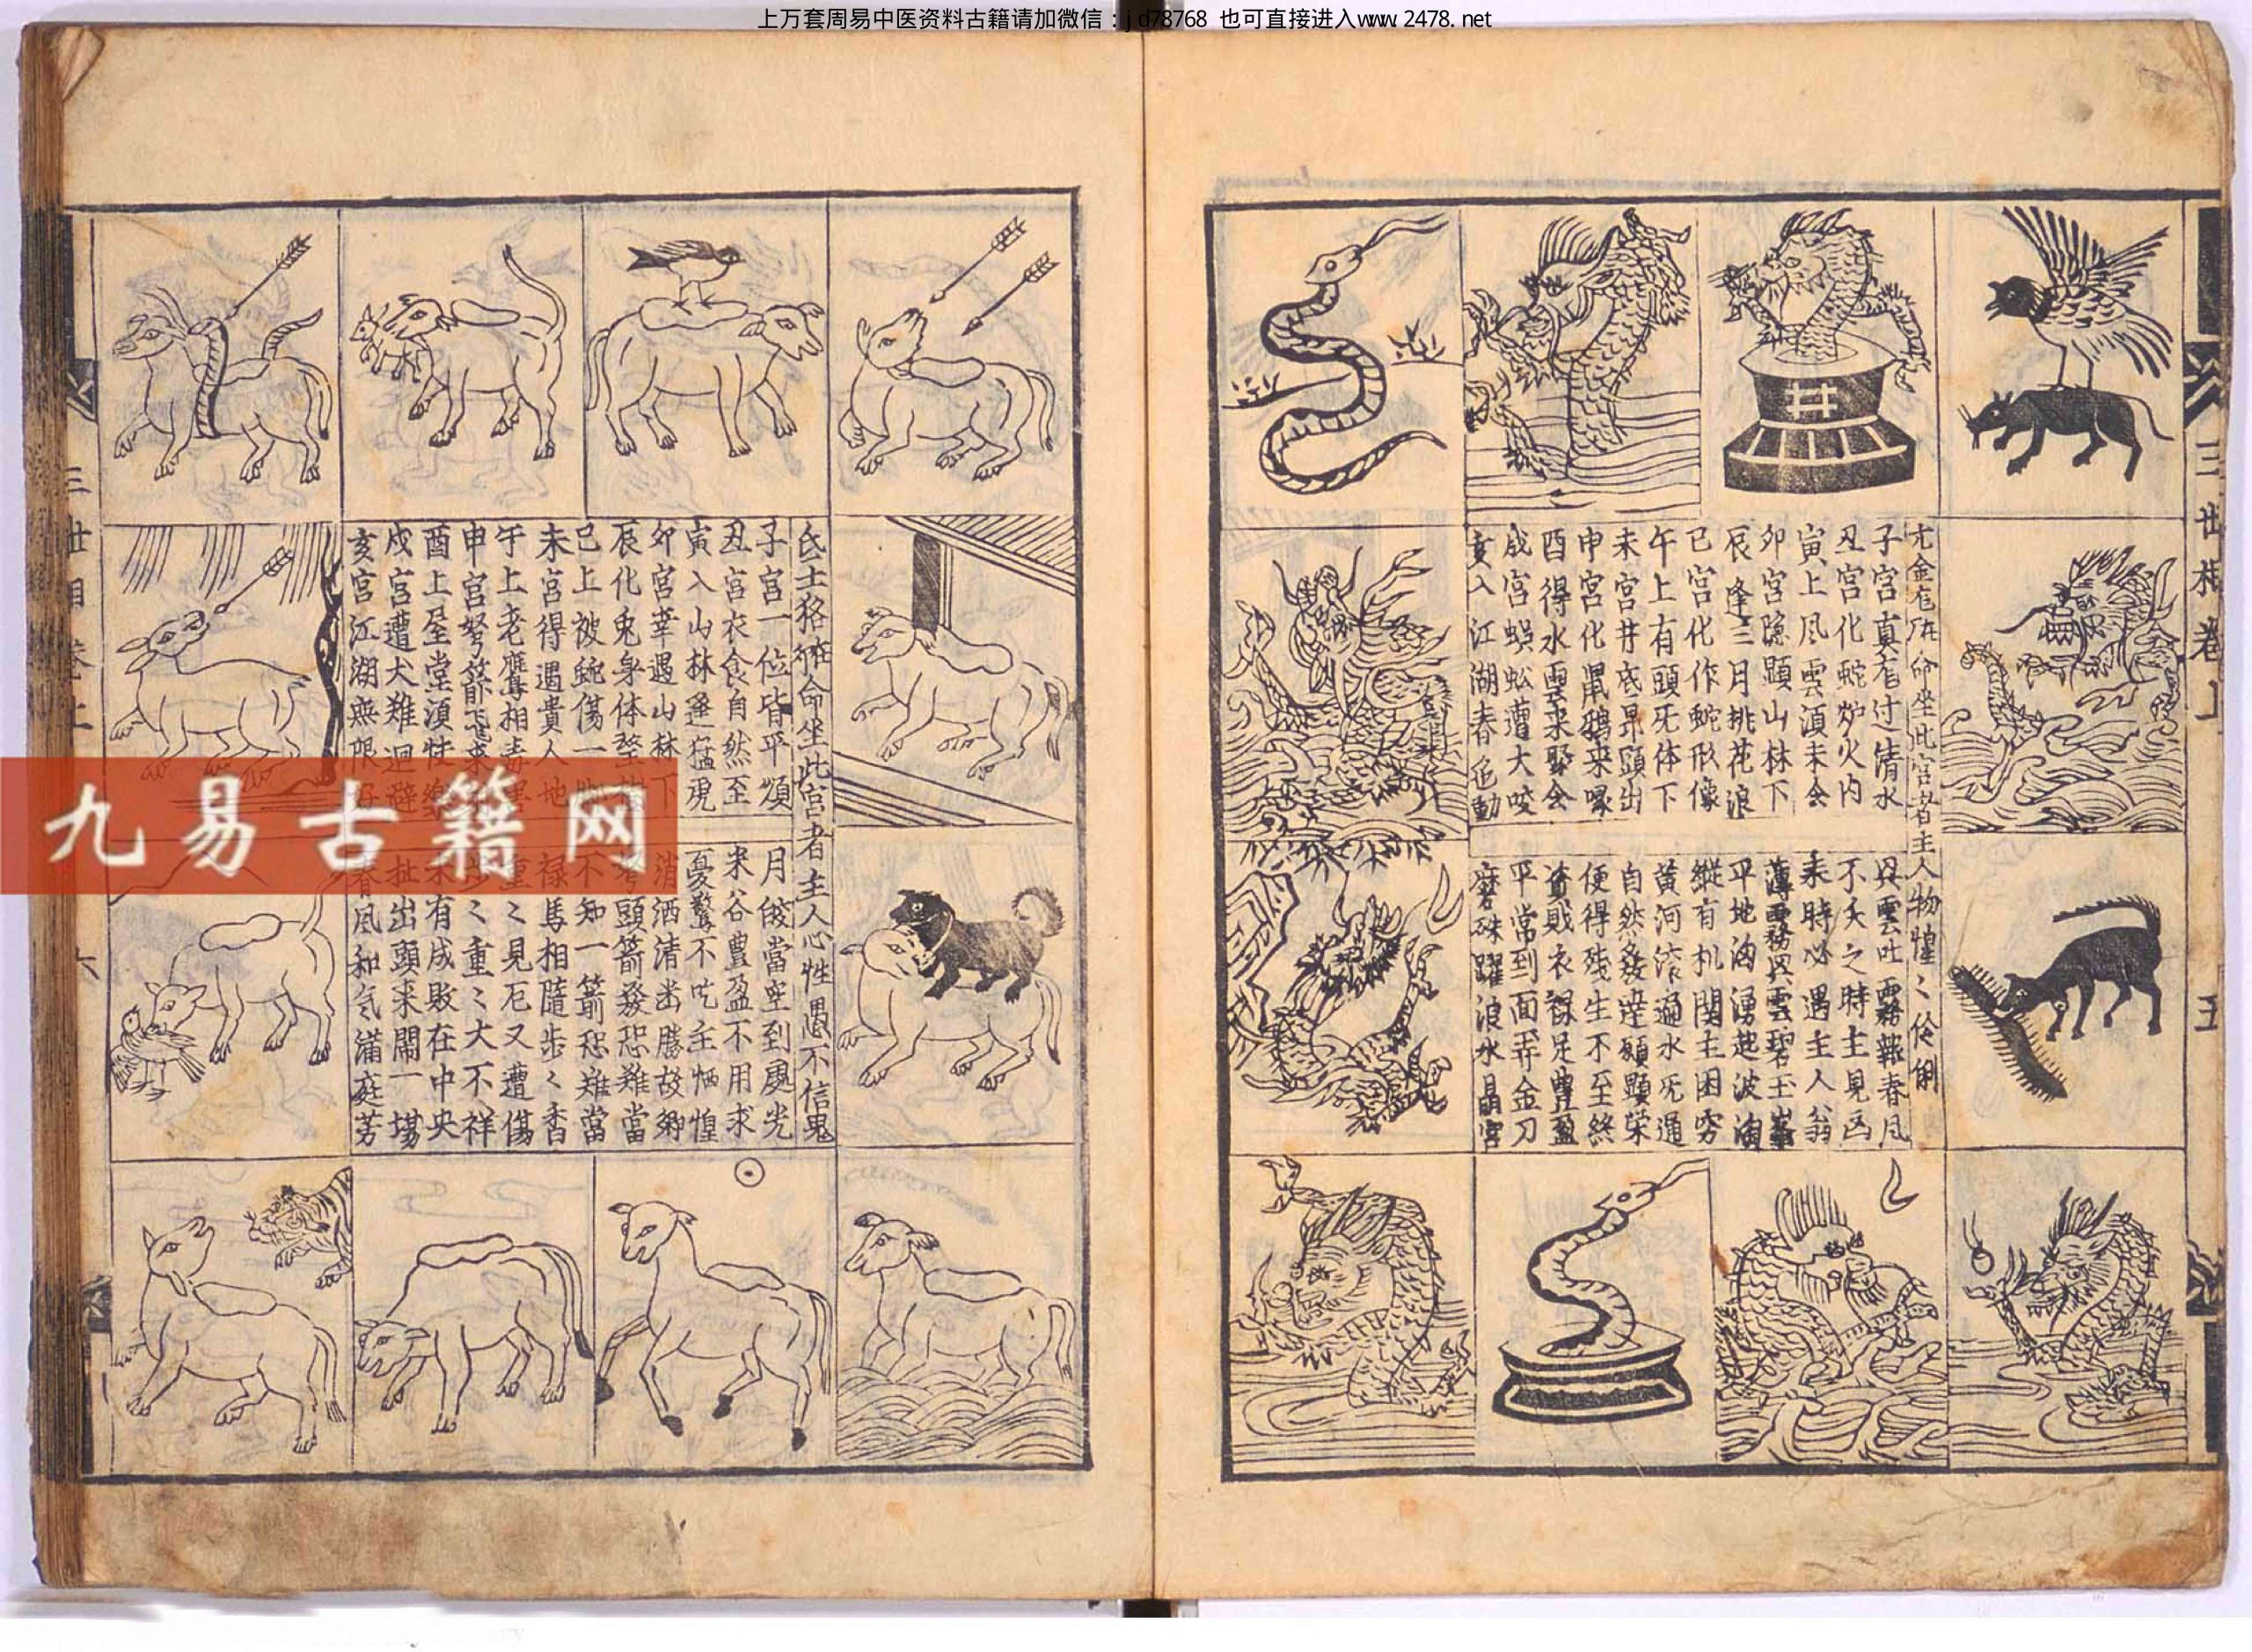 上万套周易中医资料古籍请加微信：jd78768 也可直接进入www.2478.net
三世相卷上
五
亢金龙 命坐此宫者主人物惺〻伶俐
子宮真龙过清水
興雲吐霧報春风
丑宮化蛇炉火内
不久之時主見凶
寅上风雲湏未会
来時必遇主人翁
卯宮隐顕山林下
薄霧興雲碧玉峯
辰逢三月桃花浪
平地洶湧起波濤
巳宮化作蛇形像
縱有机関主困穷
午上有頭旡体下
黄河滚过水旡通
未宮井底昂頭出
自然發達願顕荣
申宮化鼠鴉来啄
便得残生不至終
酉得水雲来聚会
資財衣禄足豊盈
戌宮蜈蚣遭大咬
平常到面弄金刀
亥入江湖春色動
躍浪水晶宮
氐土貉 命坐此宫者主人心性愚不信鬼
子宮一位皆平順
月皎當空到處光
丑宮衣食自然至
米谷豊盈不用求
寅入山林逢猛虎
憂驚不吃主恓惶
卯宮幸遇山林下
消洒清出勝故鄉
辰化兎身体
頭箭發恐难當
巳上被蛇傷一
不知一箭恐难當
未宮得遇貴人地
禄馬相隨步〻香
午上老鷹相
重〻見厄又遭傷
申宮弩箭飞来
〻重〻大不祥
酉上屋堂湏性
有成敗在中央
戌宮遭犬难迴避
扯出頭来鬧一場
亥宮江湖無限好
春風和气滿庭芳
三世相卷上
六
九易古籍网